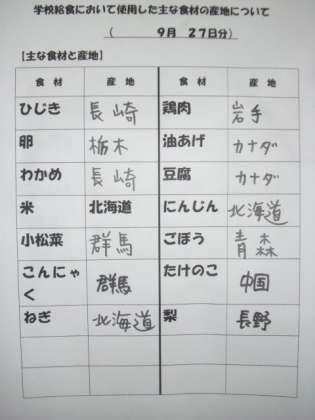 学校給食において使用した主な食材の産地について
（ 9月 27日分）
【主な食材と産地】
食 材 産 地 食 材 産 地
ひじき 長崎 鶏肉 岩手
卵 栃木 油あげ カナダ
わかめ 長崎 豆腐 カナダ
米 北海道 にんじん 北海道
小松菜 群馬 ごぼう 青森
こんにゃく 群馬 たけのこ 中国
ねぎ 北海道 梨 長野